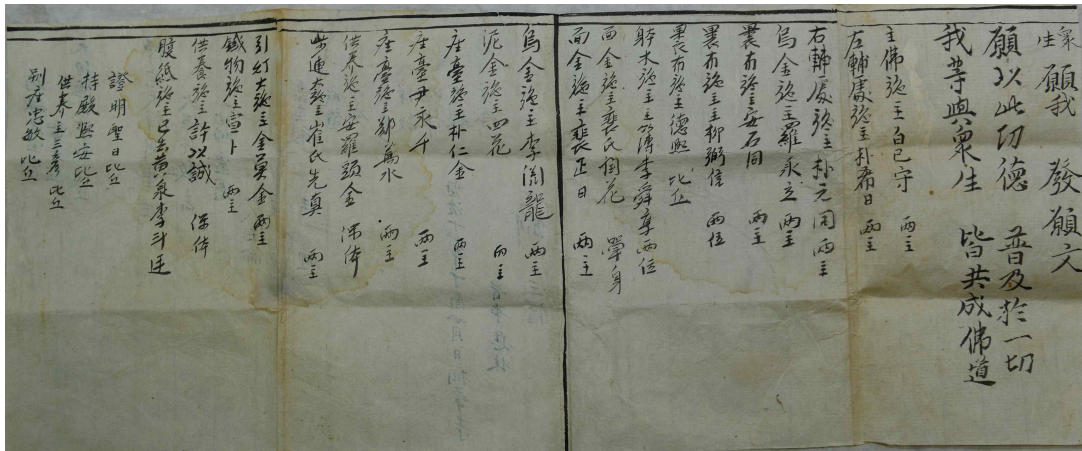 衆生願我 發願文
願以此功德 普及於一切
我等與衆生 皆共成佛道
主佛施主白已守 兩主
左輔處施主朴希日 兩主
右輔處施主朴元同 兩主
烏金施主羅永立 兩主
裏布施主安石同 兩主
裏布施主柳弼信 兩位
裏衣布施主德熙 比丘
躰木施主 李舜章 兩位
面金施主裵氏倒花 單身
面金施主裵正日 兩主
烏金施主李澗龍 兩主
泥金施主四花 兩主
座臺施主朴仁金 兩主
座臺尹永千 兩主
座臺施主鄭萬水 兩主
供养施主安羅頭金 保体
大施主崔氏先真 兩主
引灯大施主金莫金 兩主
鐵物施主富卜 兩主
供養施主許以誠 保体
腹紙施主 李斗廷
證明聖日比丘
持殿熙安比丘
供养主三彦比丘
別座忠敏 比丘